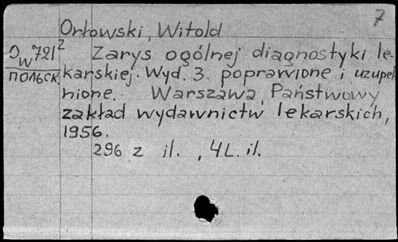 7
Orłowski, Witold
Dw721²
польск
Zarys ogólnej diagnostyki le-
karskiej. Wyd. 3. poprawione i uzupeł-
nione. Warszawa, Państwowy
zakład wydawnictw lekarskich,
1956.
296 z il., 4L. il.